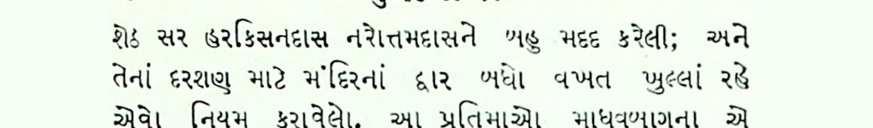 શેઠ સર હરકિસનદાસ નરોત્તમદાસને બહુ મદદ કરેલી; અને
તેનાં દરશણ માટે મંદિરનાં દ્વાર બધો વખત ખુલ્લાં રહે
એવો નિયમ કરાવેલો. આ પ્રતિમાઓ માધવબાગના એ